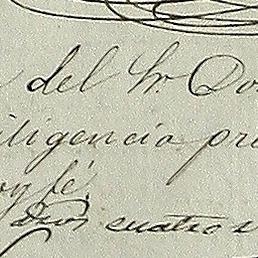 del Sr. Do
iligencia pr
oy fé.
Dios cuatro